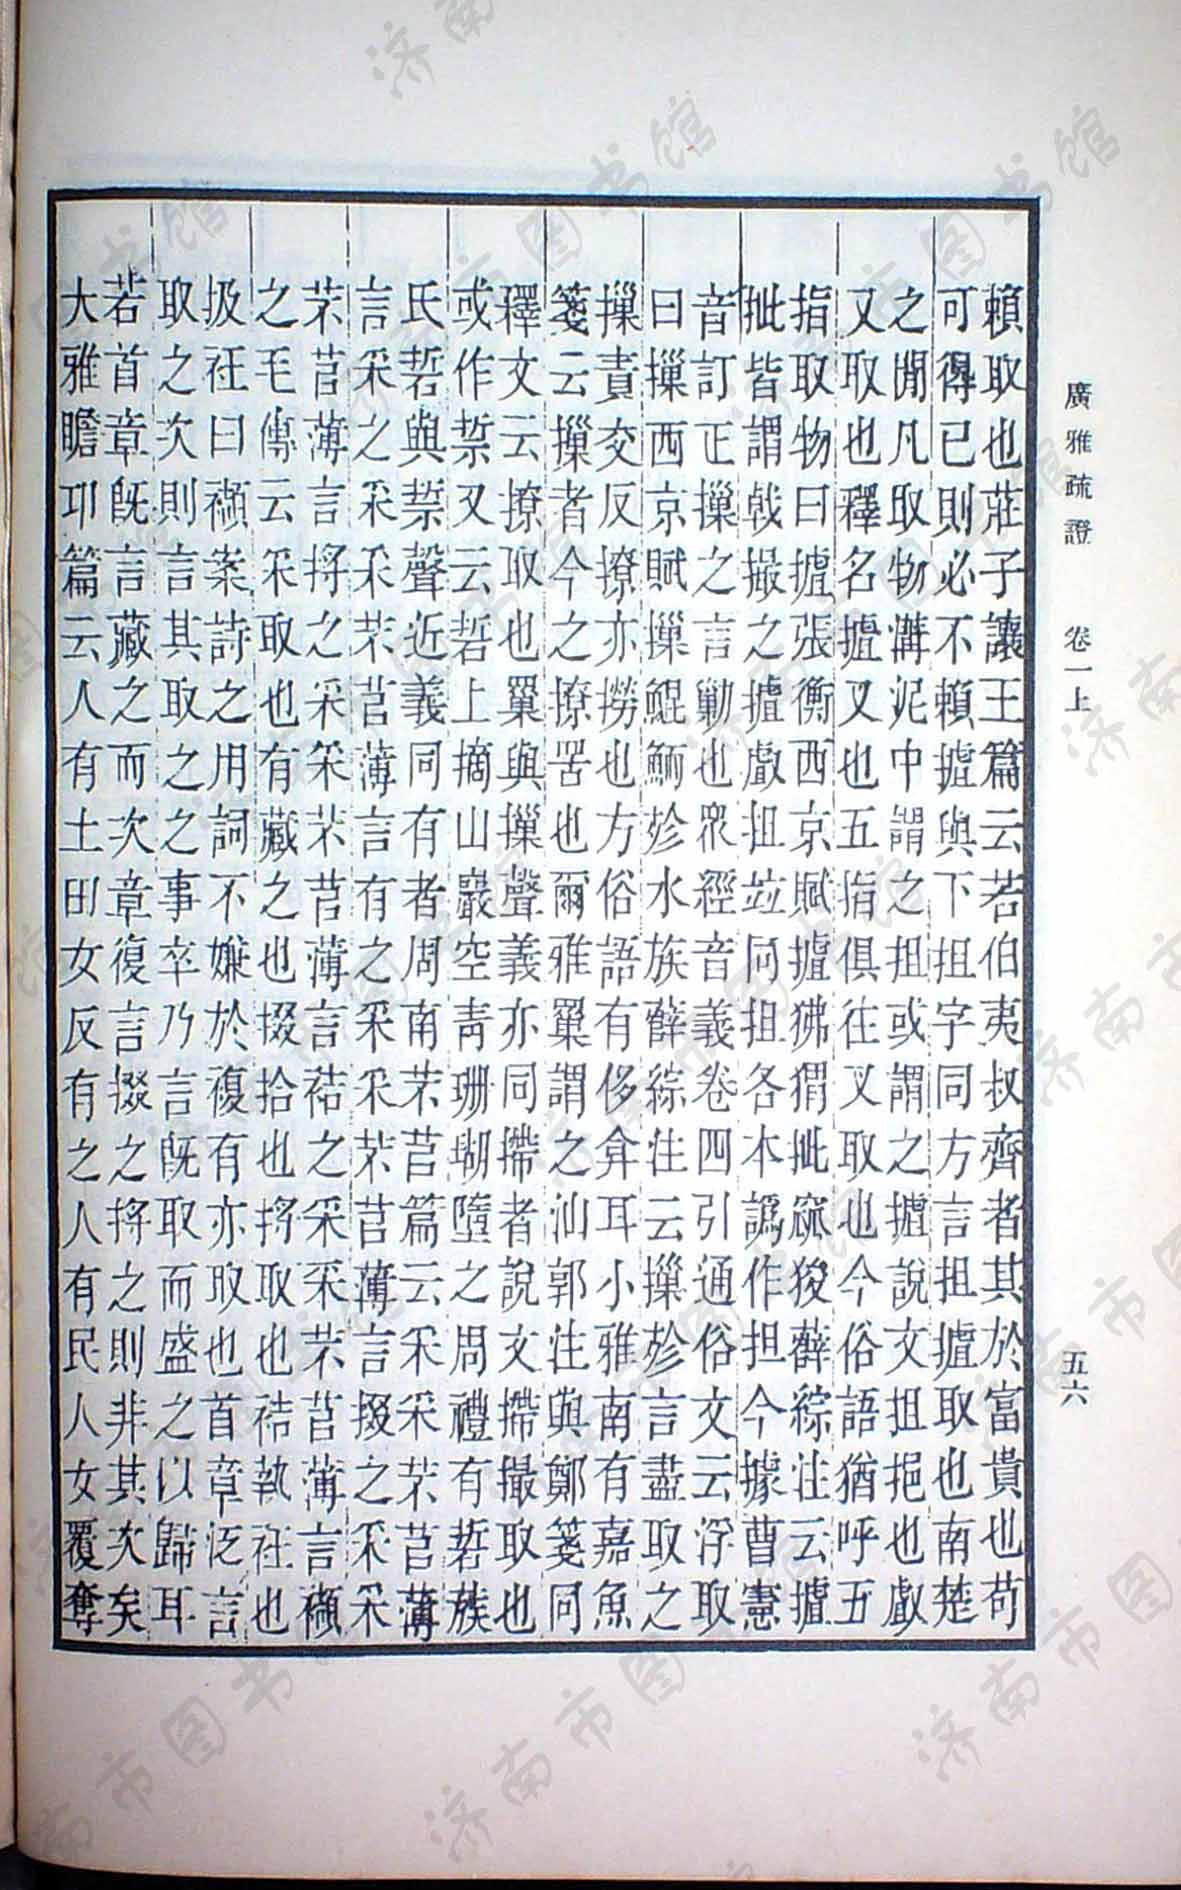 廣雅疏證　卷一上　五六
賴取也莊子讓王篇云若伯夷叔齊者其於富貴也苟
可得已則必不賴摣與下抯字同方言抯摣取也南楚
之閒凡取物溝泥中謂之抯或謂之摣說文抯挹也戱
又取也釋名摣叉也五指俱往叉取也今俗語猶呼五
指取物曰摣張衡西京賦摣狒猬批窳狻薛綜注云摣
批皆謂戟撮之摣戱抯竝同抯各本譌作担今據曹憲
音訂正摷之言勦也衆經音義卷四引通俗文云浮取
曰摷西京賦摷鯤鮞殄水族薛綜注云摷殄言盡取之
摷責交反撩亦撈也方俗語有侈弇耳小雅南有嘉魚
箋云摷者今之撩罟也爾雅罺謂之汕郭注與鄭箋同
釋文云撩取也罺與摷聲義亦同㩜者說文㩜撮取也
或作䇽又云硩上摘山巖空青珊瑚墮之周禮有硩蔟
氏硩與䇽聲近義同有者周南芣苢篇云采采芣苢薄
言采之采采芣苢薄言有之采采芣苢薄言掇之采采
芣苢薄言捋之采采芣苢薄言袺之采采芣苢薄言襭
之毛傳云采取也有藏之也掇拾也捋取也袺執衽也
扱衽曰襭案詩之用詞不嫌於複有亦取也首章泛言
取之次則言其取之之事卒乃言旣取而盛之以歸耳
若首章旣言藏之而次章復言掇之捋之則非其次矣
大雅瞻卬篇云人有土田女反有之人有民人女覆奪